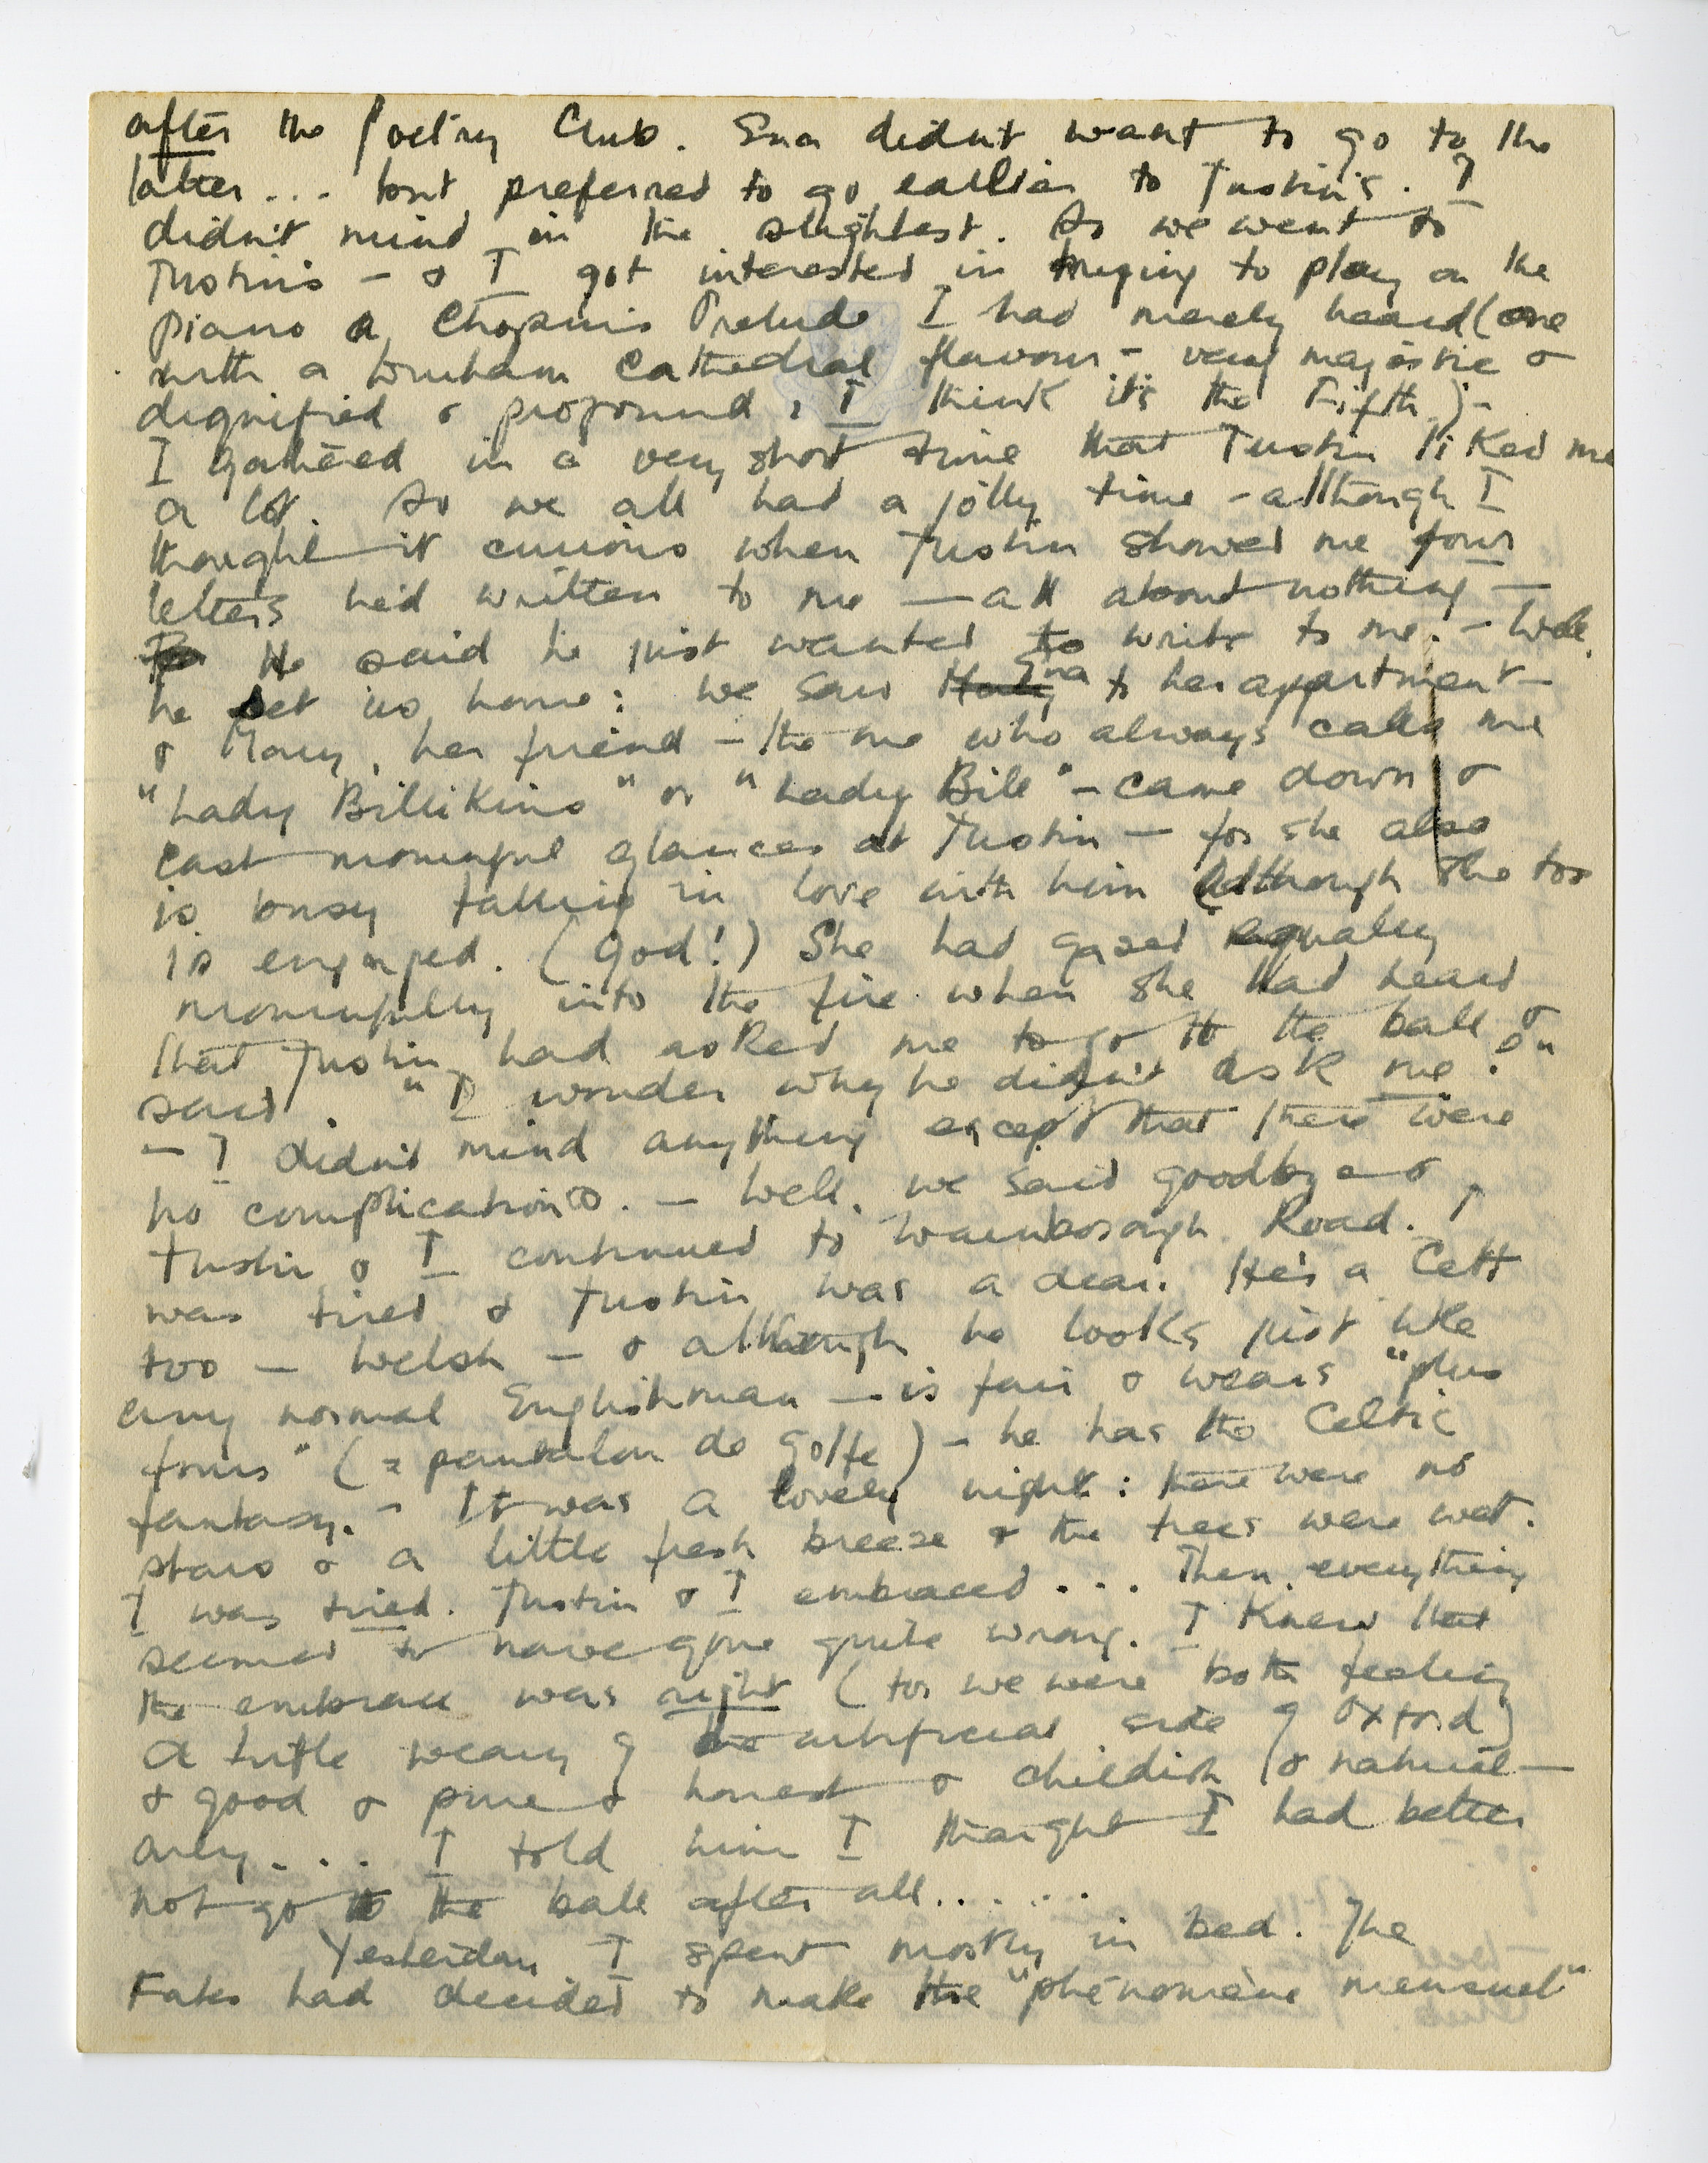 after the Poetry Club. Ena didn't want to go to the
latter... but preferred to go earlier to Tustin's. I
didn't mind in the slightest. So we went to
Tustin's – & I got interested in trying to play on the
piano a Chopin's Prelude I had merely heard (one
with a Durham Cathedral flavour – very majestic &
dignified & profound, I think it's the Fifth) –
I gathered in a very short time that Tustin liked me
a lot. So we all had a jolly time – although I
thought it curious when Tustin showed me four
letters he'd written to me — all about nothing —
He said he just wanted to write to me. – Well,
he set us home: we saw Ena to her appartment –
& Mary, her friend – the one who always calls me
"Lady Billikins" or "Lady Bill" – came down &
cast mournful glances at Tustin – for she also
is busy falling in love with him although she too
is engaged. (God!) She had gazed equally
mournfully into the fire when she had heard
that Tustin had asked me to go to the ball &
said. "I wonder why he didn't ask me?"
– I didn't mind anything except that there were
no complications. – Well, we said goodbye &
Tustin & I continued to Road. I
was tired & Tustin was a dear. He's a Celt
too – Welsh – & although he looks just like
any normal Englishman – is fair & wears "plus
fours" (= pantalon de golfe) – he has the Celtic
fantasy. – It was a lovely night: there were no
stars & a little fresh breeze & the trees were wet.
I was tired. Tustin & I embraced... Then, everything
seemed to have gone quite wrong. I knew that
the embrace was right (for we were both feeling
a little weary of the artificial side of Oxford)
& good & pure & honest & childish & natural —
only.... I told him I thought I had better
not go to the ball after all.....
Yesterday I spent mostly in bed. The
Fates had decided to make the "phénomène mensuel"